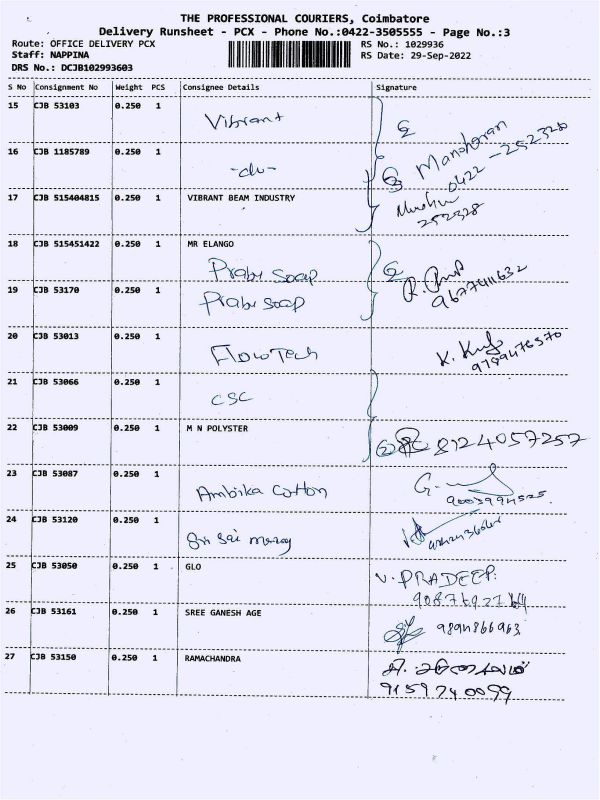 THE PROFESSIONAL COURIERS, Coimbatore
Delivery Runsheet - PCX - Phone No.:0422-3505555 - Page No.:3
Route: OFFICE DELIVERY PCX RS No.: 1029936
Staff: NAPPINA RS Date: 29-Sep-2022
DRS No.: DCJB102993603
S No Consignment No Weight PCS Consignee Details Signature
15 CJB 53103 0.250 1 Vibrant
16 CJB 1185789 0.250 1 -do- Manoharan 0422-252328
17 CJB 515404815 0.250 1 VIBRANT BEAM INDUSTRY 252328
18 CJB 515451422 0.250 1 MR ELANGO
Prabu Soap 9677411632
19 CJB 53170 0.250 1 Prabu Soap
20 CJB 53013 0.250 1 FlowTech K. 9789476370
21 CJB 53066 0.250 1 CSC
22 CJB 53009 0.250 1 M N POLYSTER 8124057257
23 CJB 53087 0.250 1 Ambika Cotton G. 9003994525
24 CJB 53120 0.250 1 Sri Sai
25 CJB 53050 0.250 1 GLO V. PRADEEP.
26 CJB 53161 0.250 1 SREE GANESH AGE 9894866963
27 CJB 53150 0.250 1 RAMACHANDRA
9159740099